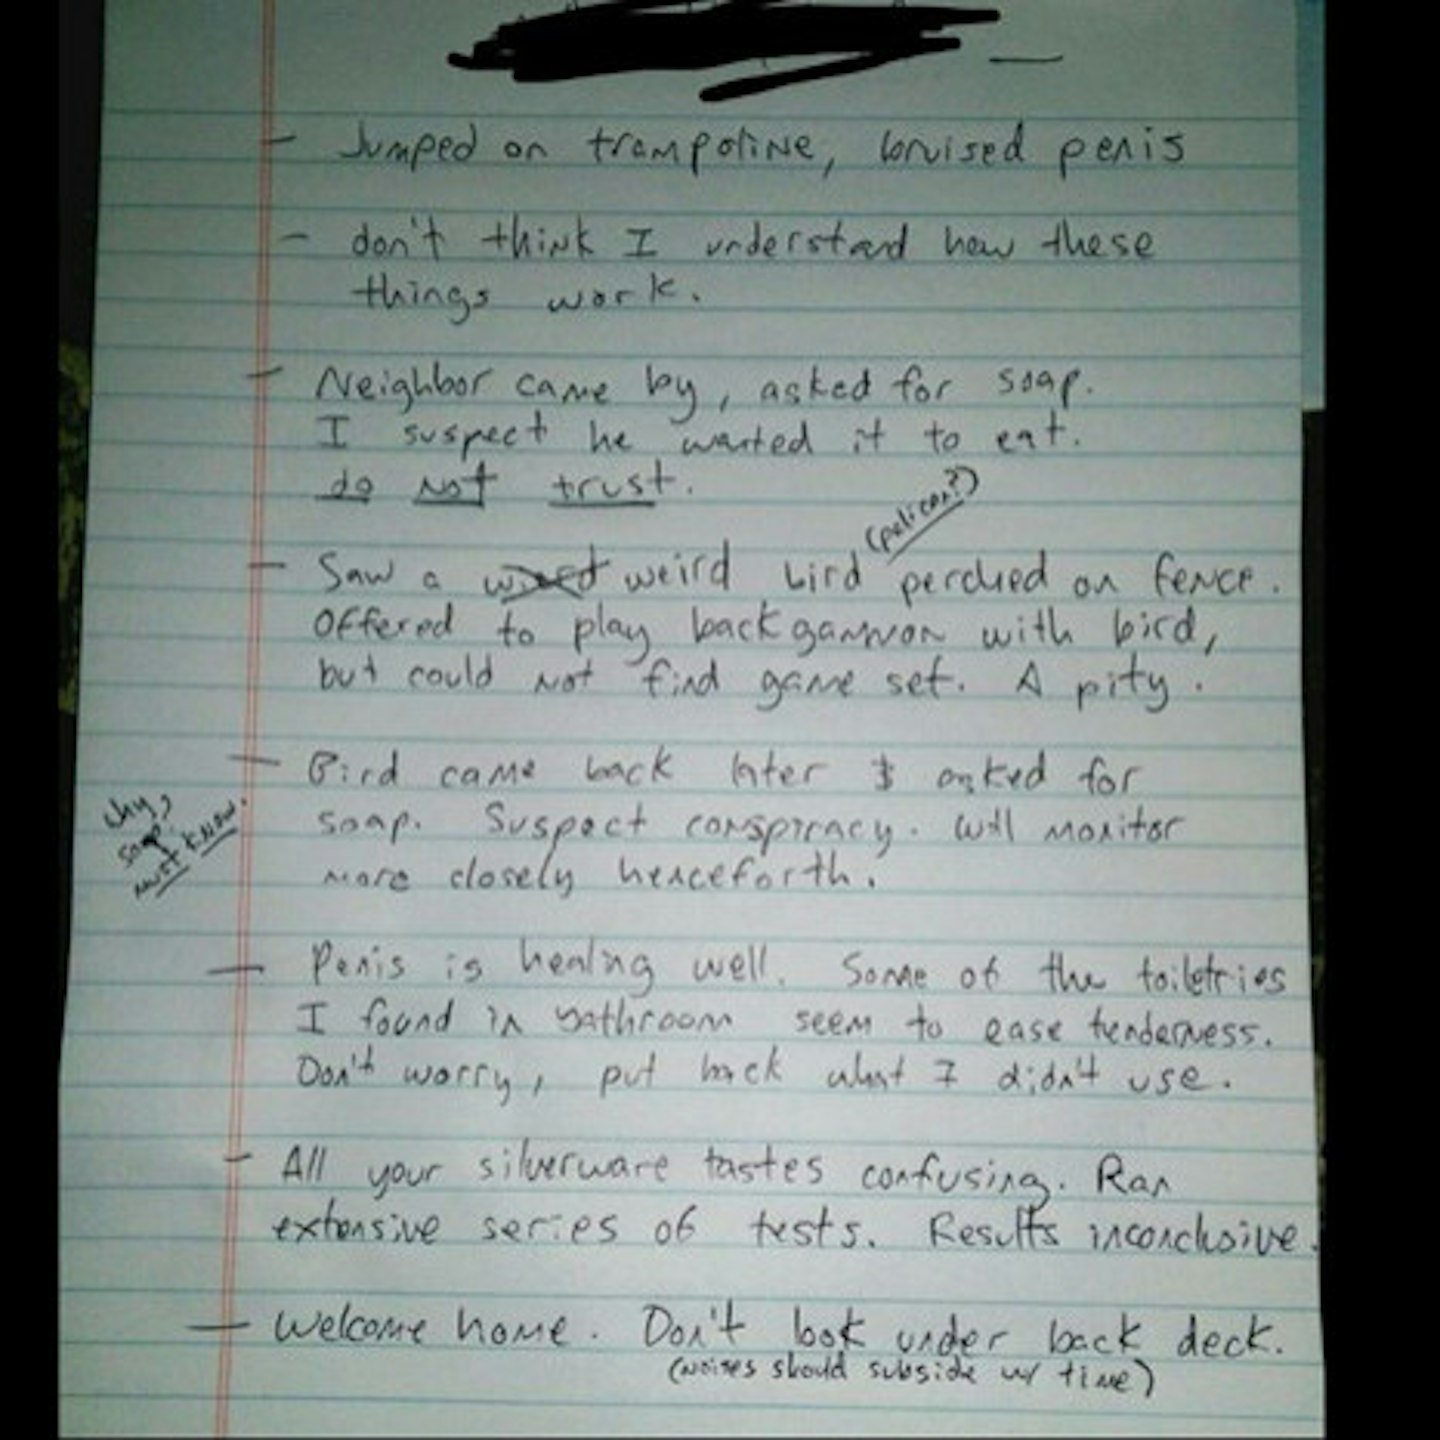 - Jumped on trampoline, bruised penis
- don't think I understand how these
things work.
- Neighbor came by, asked for soap.
I suspect he wanted it to eat.
do not trust.
(pelican?)
- Saw a weird bird perched on fence.
Offered to play backgammon with bird,
but could not find game set. A pity.
- Bird came back later & asked for
soap. Suspect conspiracy. Will monitor
more closely henceforth.
why,
soap.
must know.
- Penis is healing well. Some of the toiletries
I found in bathroom seem to ease tenderness.
Don't worry, put back what I didn't use.
- All your silverware tastes confusing. Ran
extensive series of tests. Results inconclusive.
- Welcome home. Don't look under back deck.
(noises should subside w/ time)